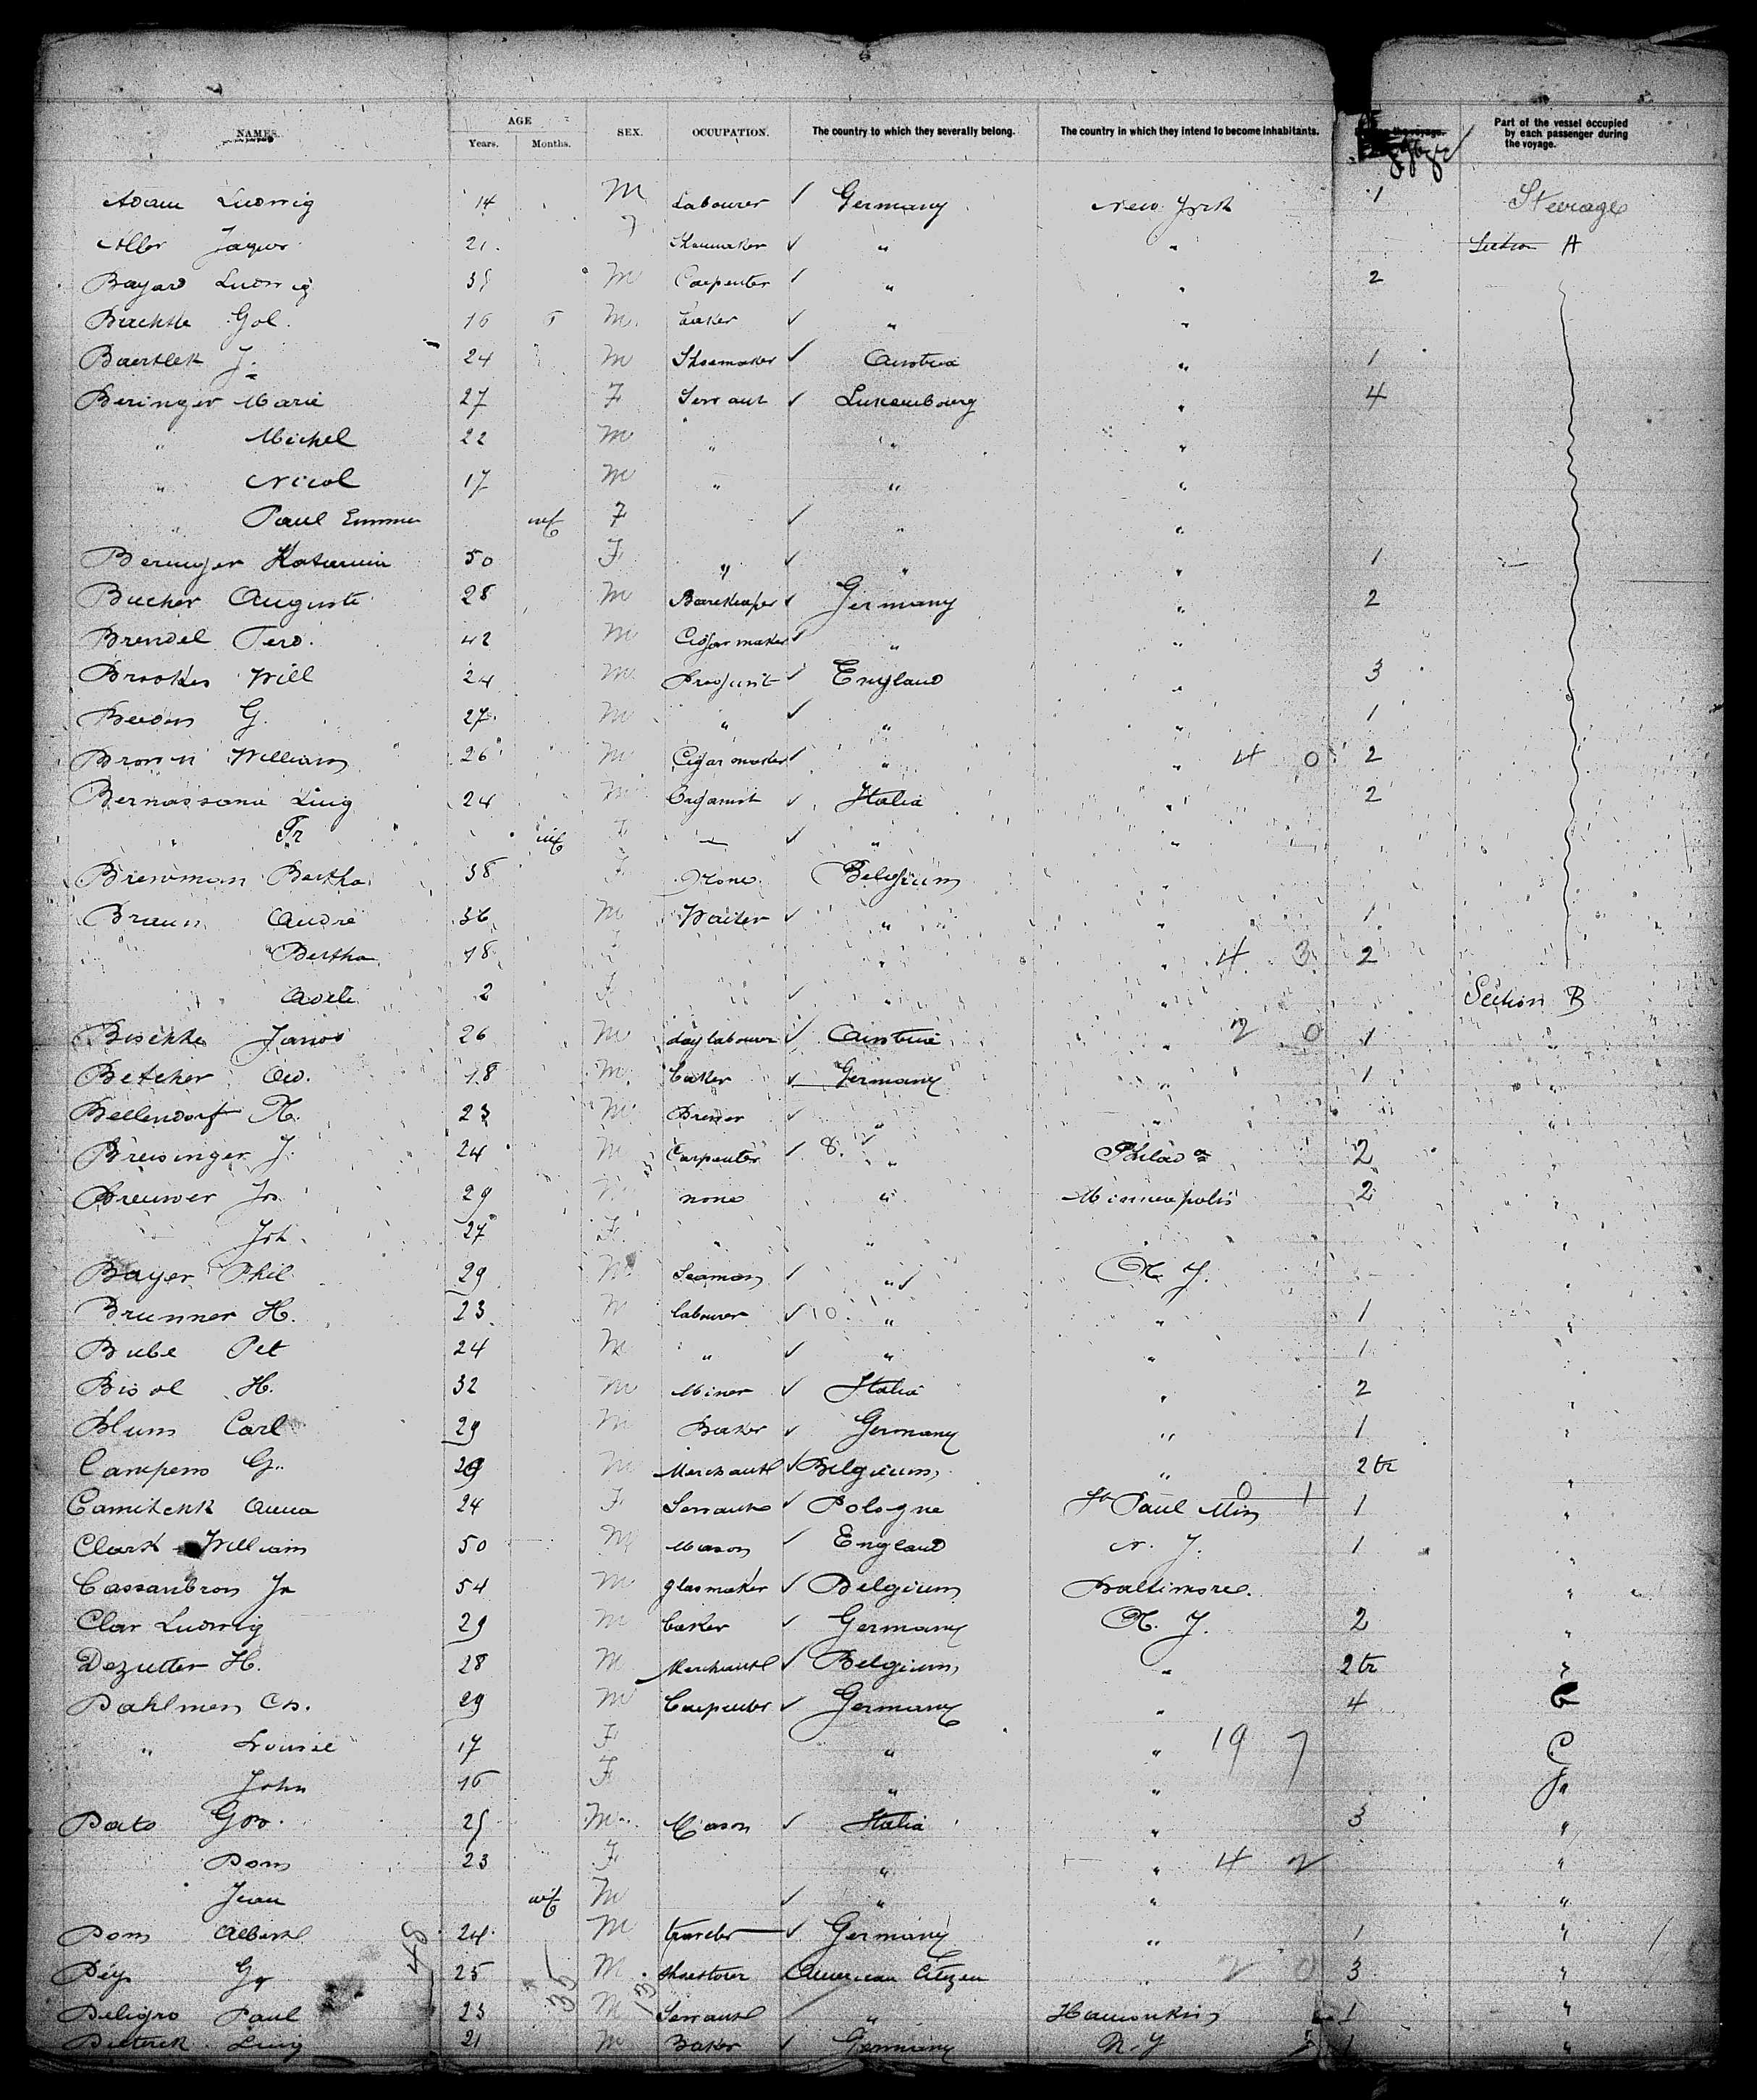 NAMES. AGE Years. Months. SEX. OCCUPATION. The country to which they severally belong. The country in which they intend to become inhabitants. Part of the vessel occupied by each passenger during the voyage.
Adam Ludwig 14 M Labourer ✓ Germany New York 1 Steerage
21 Shoemaker ✓ " " Section A
Bayard Ludwig M Carpenter ✓ " " 2
Gol. 16 M. baker ✓ " "
J. 24 M Shoemaker ✓ Austria " 1
Beringer Marie 27 F Servant ✓ Luxembourg " 4
" Michel 22 M " " "
" Nicol 17 M " " "
" Paul Emma inf F ✓ " "
Beringer 50 F " ✓ " " 1
Bucher Auguste 28 M ✓ Germany " 2
Brendel Ferd. 42 M Cigar maker ✓ " "
Brookes Will 24 M ✓ England " 3
G. 27 M " ✓ " " 1
Brown William 26 M Cigar maker ✓ " " 4 0 2
Luig 24 M ✓ Italia " 2
" Fr inf F — ✓ " "
Bertha 38 F None Belgium
Braun André 36 M Waiter ✓ " " 1
Bertha 18 F " " 4 3 2
Adele 2 F ✓ " " Section B
Janos 26 M day labourer ✓ Austria " 2 0 1 "
Betcher Ad. 18 M. baker ✓ Germany " 1 "
Bellendorf N. 23 M Brewer ✓ " " "
Breisinger J. 24 M Carpenter ✓ 8. " Philada 2 "
Breuwer Jn 29 M none " Minneapolis 2 "
Joh. 27 F. " " "
Bayer Phil 29 M Seaman ✓ " ✓ N. Y. "
Brunner H. 23 M labourer ✓ 10. " " 1 "
Bube Pet 24 M " ✓ " " 1 "
Bisol H. 32 M Miner ✓ Italia " 2 "
Blum Carl 29 M Baker ✓ Germany " 1 "
G. 29 M Merchant ✓ Belgium " 2 tr "
Anna 24 F Servant ✓ Pologne St Paul Min 0 1 1 "
Clark William 50 M Mason ✓ England N. Y. 1 "
Cassanbron Jn 54 M glasmaker ✓ Belgium Baltimore. "
Clar Ludwig 29 M baker ✓ Germany N. Y. 2 "
Dezutter H. 28 M Merchant ✓ Belgium " 2 tr "
Dahlmen Ch. 29 M Carpenter ✓ Germany " 4
" Louise 17 F " " 19 7 C
John 16 F " "
Dato M Mason ✓ Italia " 3 "
Dom 23 F " " 4 2 "
Jean inf M ✓ " " "
Dom Albert 24 M ✓ Germany " 1 "
Gg 25 M American Citizen " 2 0 3 "
Deligro Paul 23 M Servant " 1 "
Luig 21 M Baker ✓ Germany N. Y 1 "